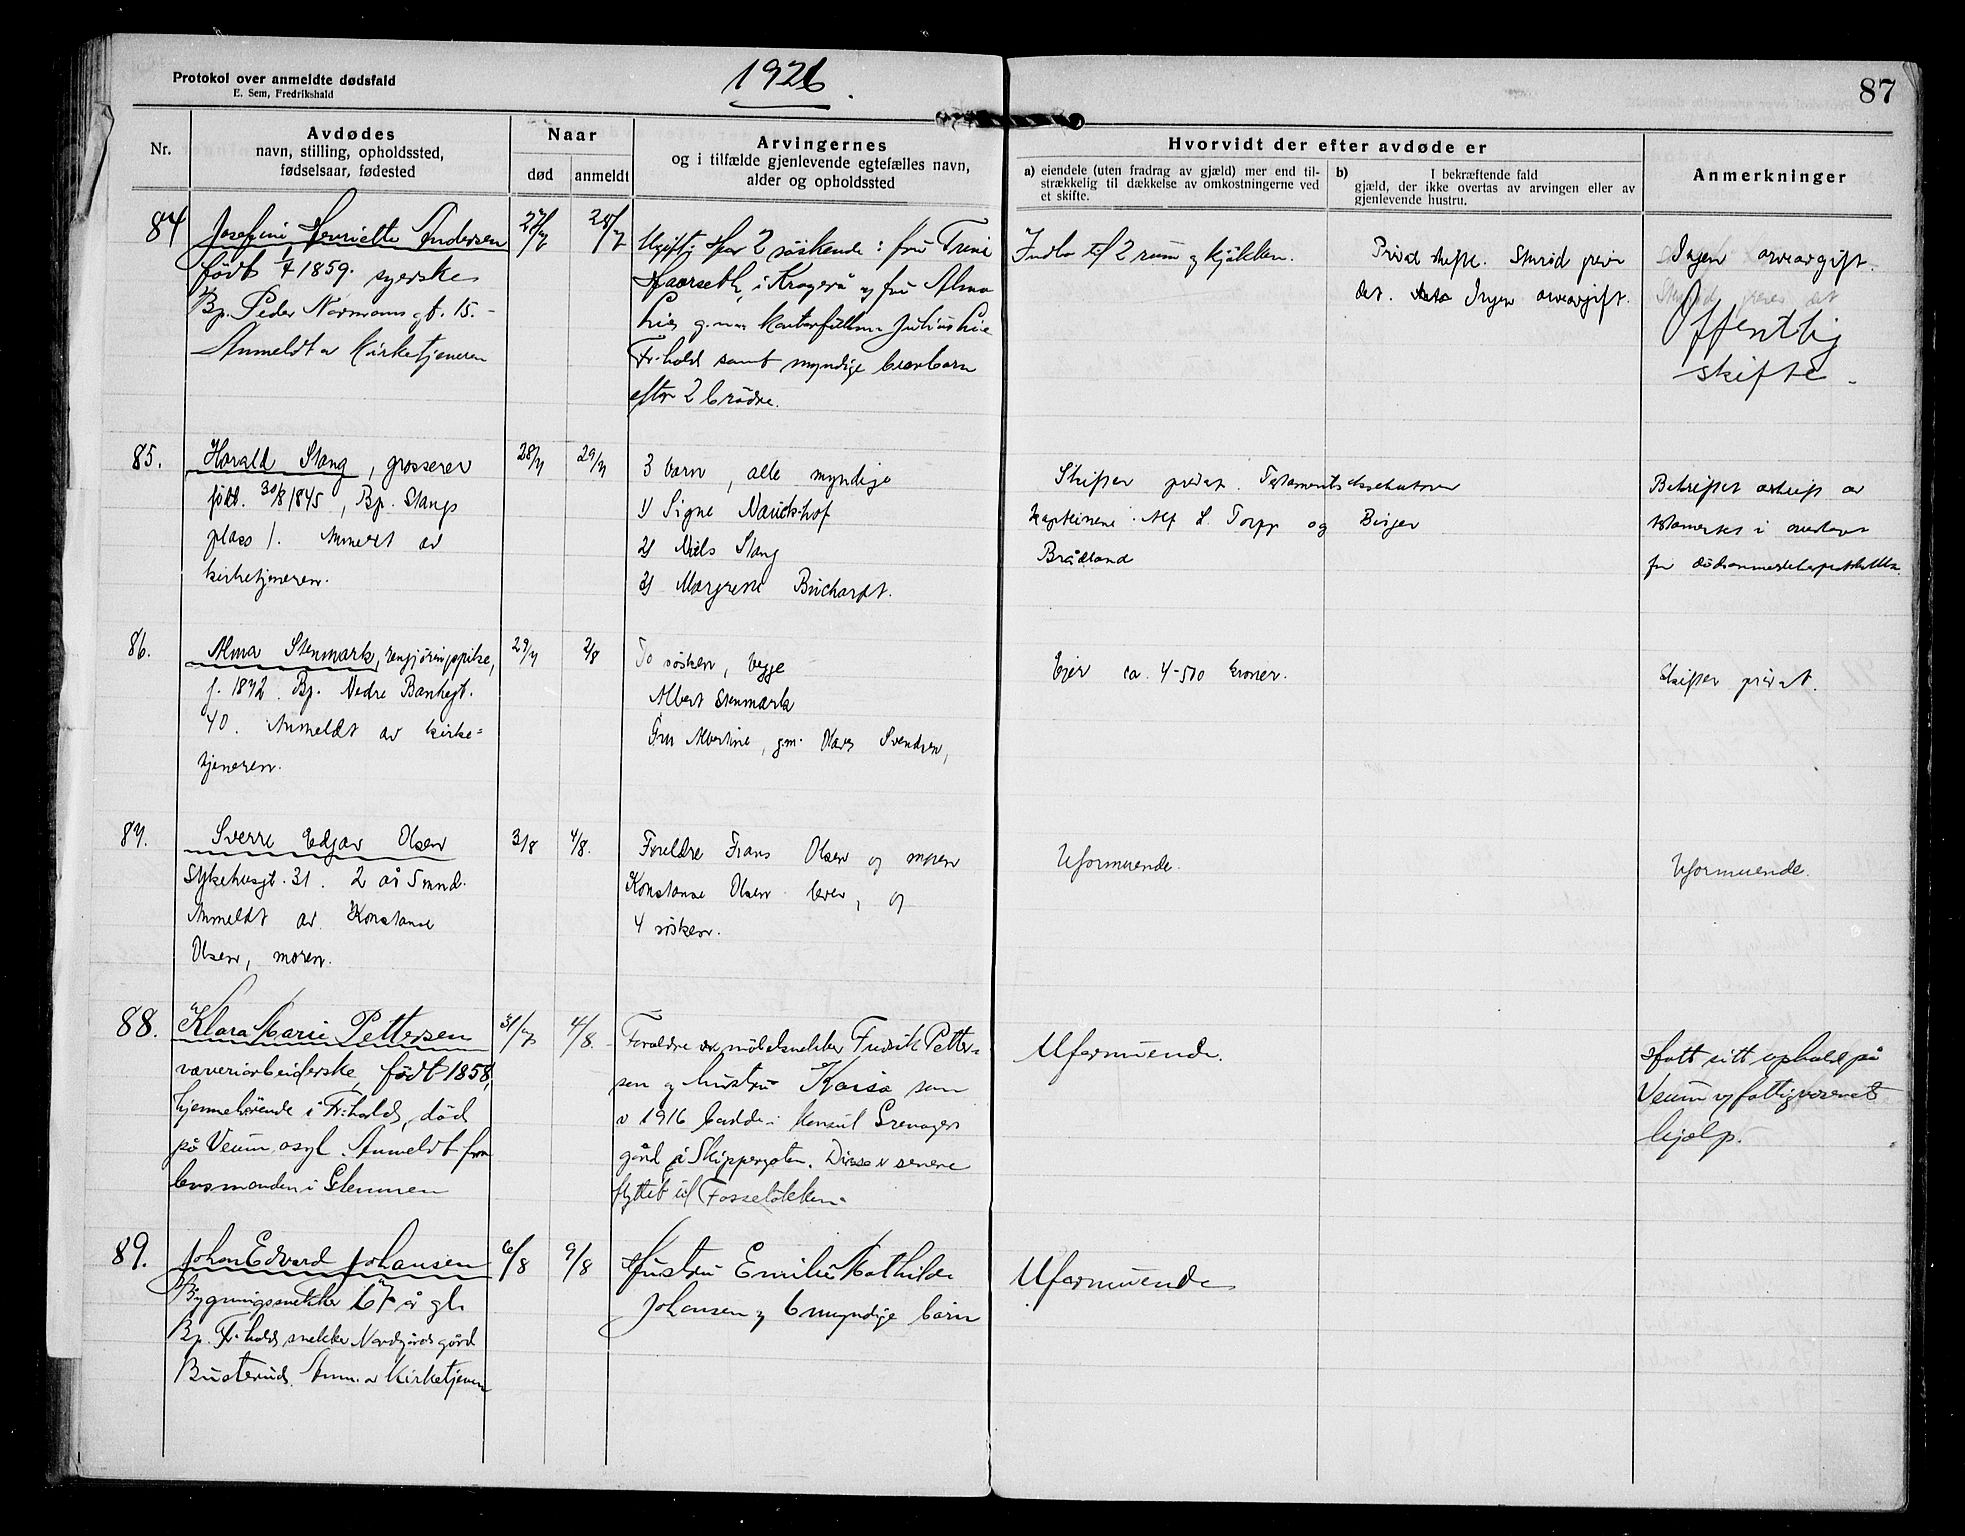 Protokol over anmeldte dødsfald
E. Sem, Fredrikshald
1926.
87
Nr.
Avdødes
navn, stilling, opholdssted,
fødselsaar, fødested
Naar
død
anmeldt
Arvingernes
og i tilfælde gjenlevende egtefælles navn,
alder og opholdssted
Hvorvidt der efter avdøde er
a) eiendele (uten fradrag av gjæld) mer end til-
strækkelig til dækkelse av omkostningerne ved
et skifte.
b) I bekræftende fald
gjæld, der ikke overtas av arvingen eller av
gjenlevende hustru.
Anmerkninger
84
Josefine Henriette Andersen
født 1/4 1859. syerske
Bp. Peder Normans gt. 15.-
Anmeldt av Kirketjeneren
27/7
28/7
Ugift; Har 2 søskende: fru Trine
Haarseth, i Kragerø og fru Alma
Lie, g.m. Julius Lie
Fr.hald samt myndige brorbarn
efter 2 brødre.
Indbo til 2 rum og kjøkken.
Privat skifte.
det. Ingen arveavgift.
Ingen arveavgift.
Offentlig
skifte.
85.
Harald Stang, grosserer
født. 30/8 1845, Bp. Stangs
plass 1. Anmeldt av
kirketjeneren.
28/7
29/7
3 barn, alle myndige
1) Signe
2) Niels Stang
3) Margrete
Skifter privat. Testamentseksekutorer
kapteinene Alf L. Torpp og Birger
Brådland
Bekreftet avskrift av
testamentet i
for dødsanmeldelsesprotokollen.
86.
Alma Stenmark, rengjøringspike,
f. 1872. Bp. Nedre Bankegt.
40. Anmeldt av kirke=
tjeneren.
29/7
2/8
To søsken, begge
Albert Stenmark
Fru Albertine, g.m. Svendsen,
Eier ca. 4-500 kroner.
Skifter privat.
87.
Sverre Edgar Olsen
Sykehusgt. 31. 2 år 5 mnd.
Anmeldt av Konstanse
Olsen, moren.
3/8
4/8.
Foreldre Frans Olsen og moren
Konstanse Olsen lever, og
4 søsken.
Uformuende.
Uformuende.
88.
Klara Marie Pettersen
væveriarbeiderske, født 1858,
hjemmehørende i Fr.hald, død
på Veum asyl. Anmeldt fra
lensmanden i Glemmen
31/7
4/8.
Forældre møbelsnekker Fredrik Petter-
sen og hustru Kaisa som
i 1916 bodde i Konsul
gård i Skippergaten. Disse er senere
flyttet til Fosseløkken.
Uformuende.
Hatt sitt ophold på
Veum ved fattigvæsenets
hjælp.
89.
Johan Edvard Johansen
Bygningssnekker 67 år gl.
Bp. Fr.hald, snekker Nordgårds gård
Busterud. Anm. av Kirketjeneren
6/8
9/8
Hustru Emilie Mathilde
Johansen og 6 myndige barn
Uformuende